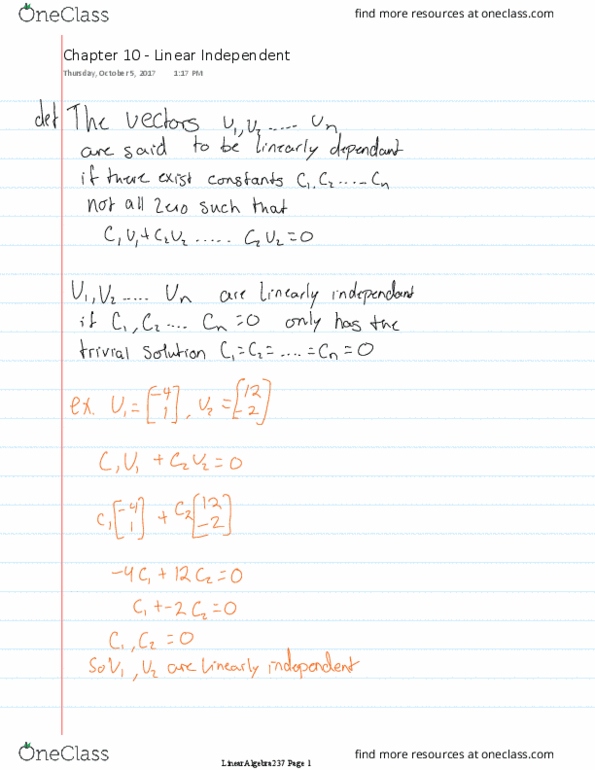 OneClass find more resources at oneclass.com
Chapter 10 - Linear Independent
Thursday, October 5, 2017 1:17 PM
def The vectors U₁, U₂ ..... Un
are said to be linearly dependant
if there exist constants C₁, C₂ ..... Cn
not all zero such that
C₁U₁+C₂U₂ ..... C₂U₂=0
U₁, U₂ ..... Un are linearly independant
if C₁, C₂ .... Cn=0 only has the
trivial solution C₁=C₂= .... =Cn=0
ex. U₁=[-4 1], U₂=[12 -2]
C₁U₁ + C₂U₂=0
C₁[-4 1] + C₂[12 -2]
-4C₁ + 12C₂=0
C₁+-2C₂=0
C₁, C₂ =0
So U₁, U₂ are linearly independent
OneClass find more resources at oneclass.com
LinearAlgebra237 Page 1